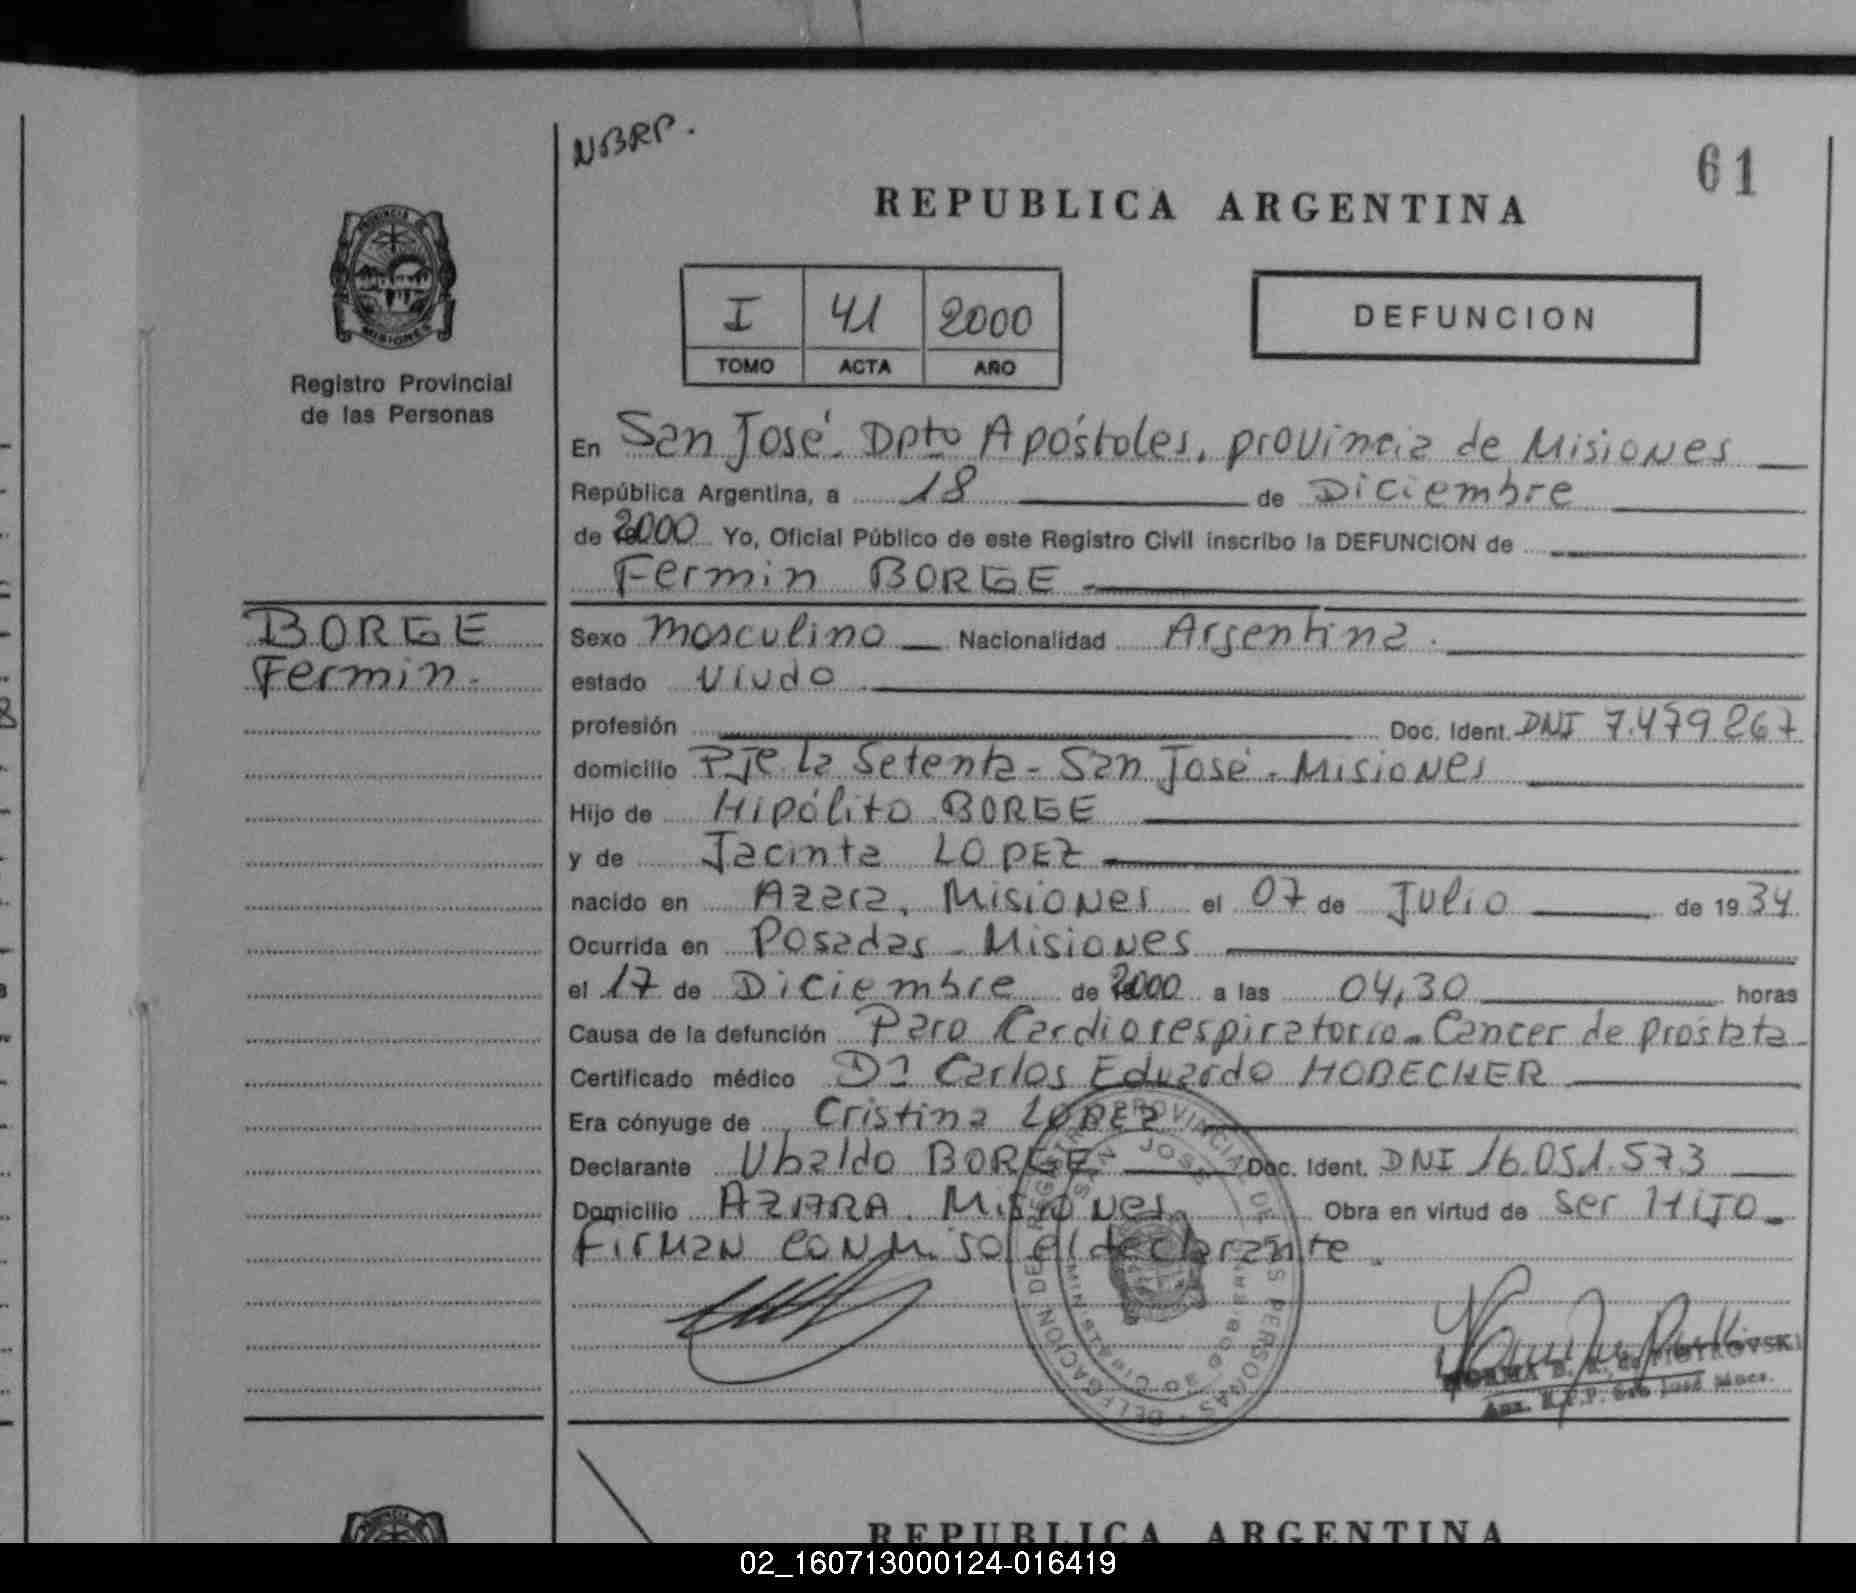 NBRP.
61
REPUBLICA ARGENTINA
PROVINCIA
MISIONES
Registro Provincial
de las Personas
I 41 2000
TOMO ACTA AÑO
DEFUNCION
En San José. Dpto Apóstoles, provincia de Misiones
República Argentina, a 18 de Diciembre
de 2000 Yo, Oficial Público de este Registro Civil inscribo la DEFUNCION de
Fermin BORGE
BORGE
Fermin.
Sexo masculino Nacionalidad Argentina.
estado viudo
profesión Doc. Ident. DNI 7.479.267
domicilio Pje la Setenta - San José - Misiones
Hijo de Hipólito BORGE
y de Jacinta LOPEZ
nacido en Azara, Misiones el 07 de Julio de 1934
Ocurrida en Posadas - Misiones
el 17 de Diciembre de 2000 a las 04,30 horas
Causa de la defunción Paro Cardiorespiratorio - Cancer de próstata
Certificado médico Dr Carlos Eduardo HOBECKER
Era cónyuge de Cristina LOPEZ
Declarante Ubaldo BORGE Doc. Ident. DNI 16.051.573
Domicilio AZARA. Misiones Obra en virtud de ser HIJO.
Firman conmigo el declarante.
DELEGACION DEL REGISTRO PROVINCIAL DE LAS PERSONAS
SAN JOSE
NORMA B. R. de PIOTROVSKI
R.P.P. San José Mnes.
REPUBLICA ARGENTINA
02_160713000124-016419